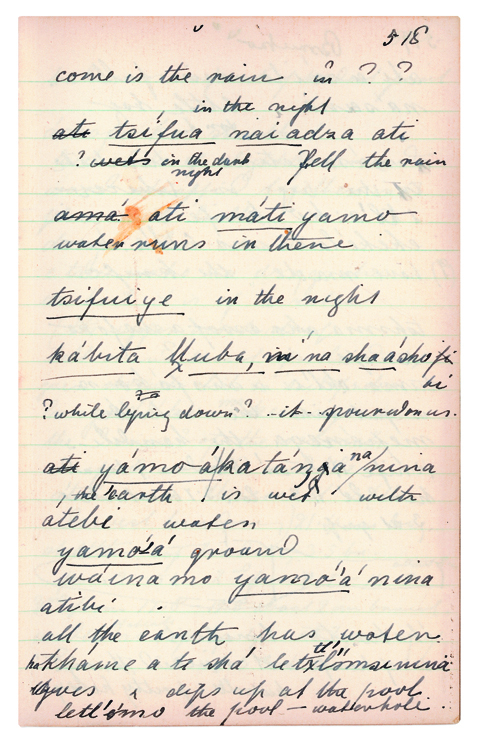 518
come is the rain in ? ?
in the night
ati tsífua nai adza ati
? wets in the dark fell the rain
night
amá ati máti yamo
water runs in there
tsifuiye in the night
kábita uba, na shaásho
bi
? while lying down? it pours on us.
ati yámo á katánga na nina
, the earth is wet with
atebi water
yamo'á' ground
wáina mo yamo'á' nina
atibi .
all the earth has water
kháme a te shá
gives dips up at the pool
letl'ómo the pool — waterhole .